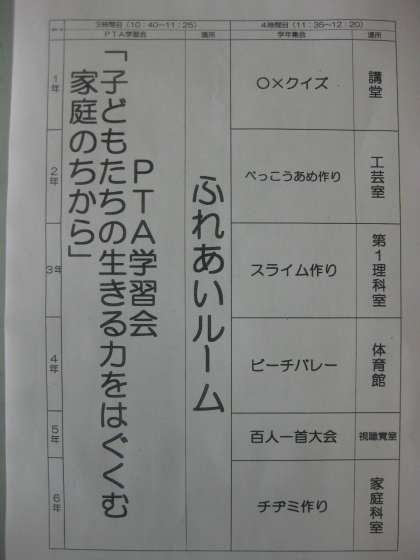 3時間目(10:40～11:25)
4時間目(11:35～12:20)
PTA学習会
場所
学年集会
場所
1年
2年
3年
4年
5年
6年
PTA学習会
「子どもたちの生きる力をはぐくむ
家庭のちから」
ふれあいルーム
○×クイズ
講堂
べっこうあめ作り
工芸室
スライム作り
第1理科室
ビーチバレー
体育館
百人一首大会
視聴覚室
チヂミ作り
家庭科室